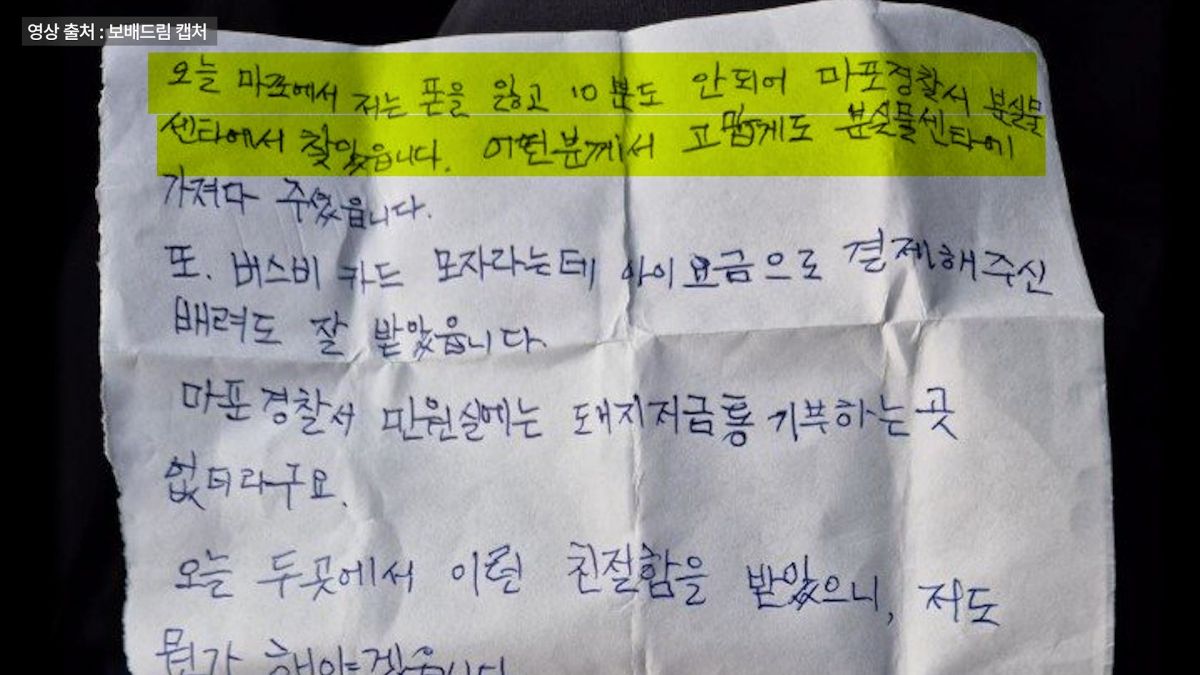 영상 출처 : 보배드림 캡처
오늘 마포에서 저는 폰을 잃고 10분도 안되어 마포경찰서 분실물
센타에서 찾았읍니다. 어떤분께서 고맙게도 분실물센타에
가져다 주셨읍니다.
또. 버스비 카드 모자라는데 아이요금으로 결제해주신
배려도 잘 받았읍니다.
마포경찰서 민원실에는 돼지저금통 기부하는 곳
없더라구요.
오늘 두곳에서 이런 친절함을 받았으니, 저도
뭔가 해야겠읍니다